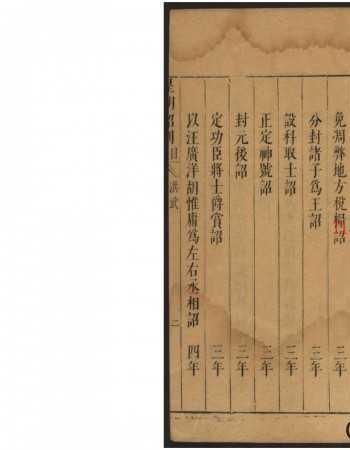 免凋弊地方稅糧詔 三年
分封諸子為王詔 三年
設科取士詔 三年
正定神號詔 三年
封元後詔 三年
定功臣將士爵賞詔 三年
以汪廣洋胡惟庸為左右丞相詔 四年
皇明詔制 目 洪武 二